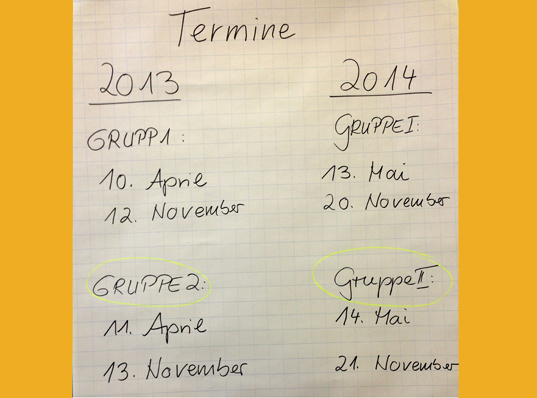 Termine
2013
GRUPP1:
10. Aprile
12. November
GRUPPE2:
11. Aprile
13. November
2014
GRUPPEI:
13. Mai
20. November
GruppeII:
14. Mai
21. November